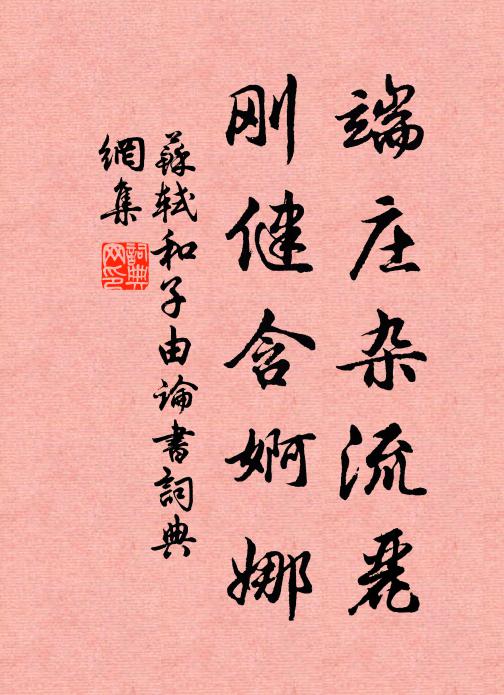 端庄杂流丽
刚健含婀娜
蘇軾和子由論書詞典
網集
詞典
网印